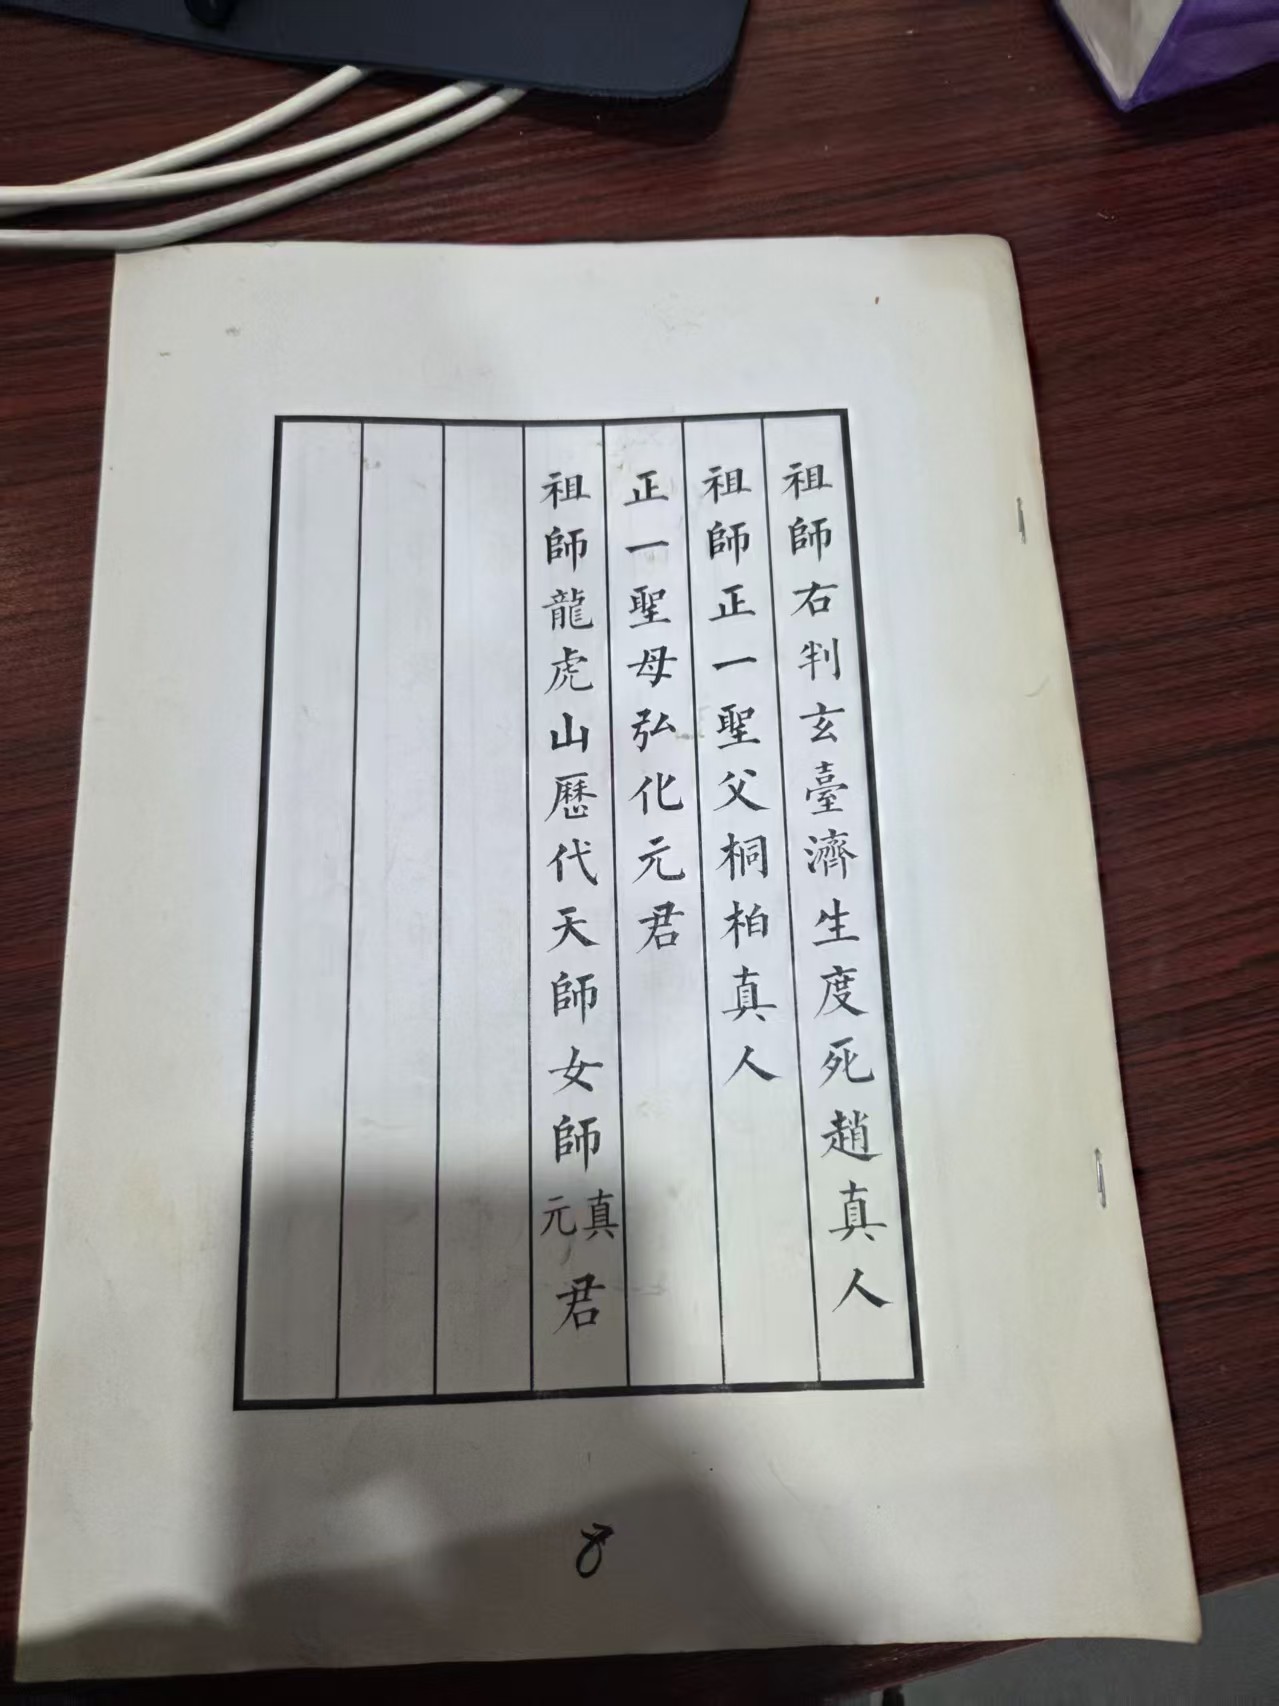 祖師右判玄臺濟生度死趙真人
祖師正一聖父桐柏真人
正一聖母弘化元君
祖師龍虎山歷代天師女師真元君
8